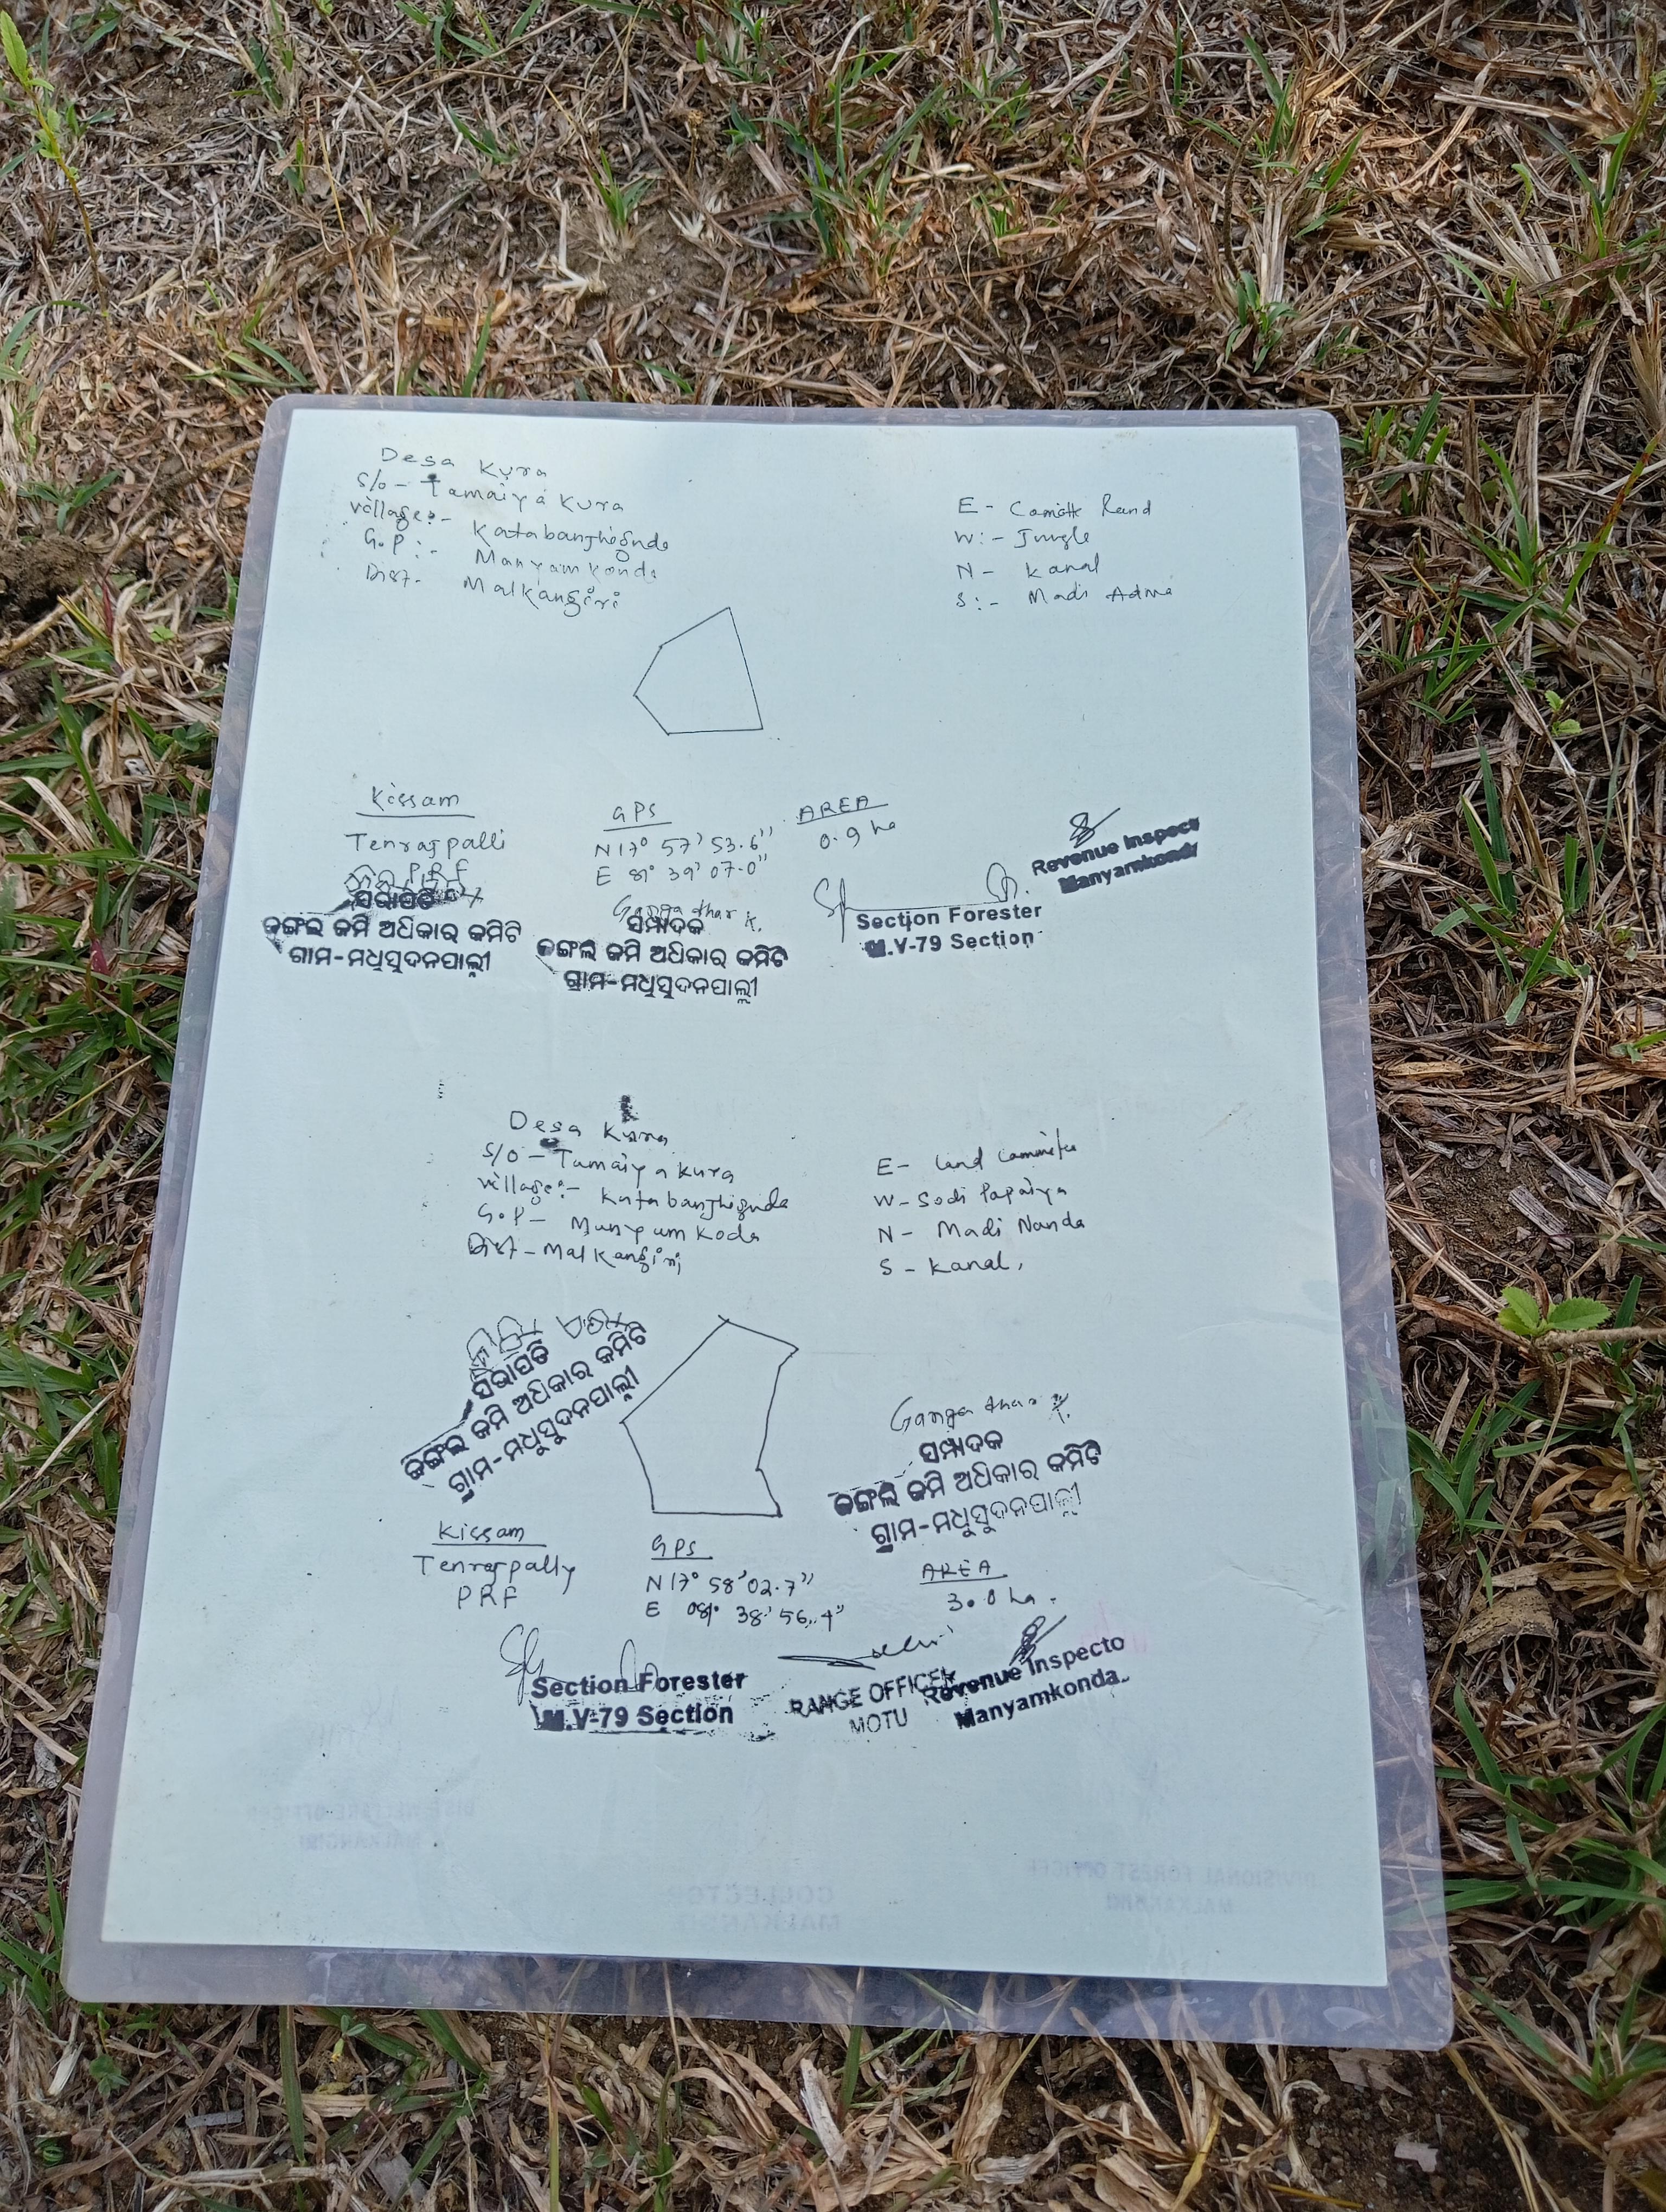 Desa Kura
S/o - Tamaiya Kura
Village:- Katabanjhigunda
G.P:- Manyam Konda
Dist- Malkangiri
E - Comotte Rand
W:- Jungle
N - Kanal
S:- Madi Adma
Kissam
Tenrajpalli
PRF
GPS
N 17° 57' 53.6"
E 81° 39' 07.0"
AREA
0.9 ha
Revenue Inspect
Manyamkond
ସଭାପତି
ଜଙ୍ଗଲ ଜମି ଅଧିକାର କମିଟି
ଗ୍ରାମ-ମଧୁସୁଦନପାଲ୍ଲୀ
Gangadhar K.
ସମ୍ପାଦକ
ଜଙ୍ଗଲ ଜମି ଅଧିକାର କମିଟି
ଗ୍ରାମ-ମଧୁସୁଦନପାଲ୍ଲୀ
Section Forester
M.V-79 Section
Desa Kura
S/O - Tamaiya Kura
Village:- Katabanjhigunda
G.P - Manyam Koda
Dist - Malkangiri
E- Land Committee
W- Sodi Papaiya
N - Madi Nanda
S - Kanal,
ସଭାପତି
ଜଙ୍ଗଲ ଜମି ଅଧିକାର କମିଟି
ଗ୍ରାମ-ମଧୁସୁଦନପାଲ୍ଲୀ
Gangadhar K.
ସମ୍ପାଦକ
ଜଙ୍ଗଲ ଜମି ଅଧିକାର କମିଟି
ଗ୍ରାମ-ମଧୁସୁଦନପାଲ୍ଲୀ
Kissam
Tenrajpally
PRF
GPS
N 17° 58' 02.7"
E 081° 38' 56.4"
AREA
3.0 ha.
Section Forester
M.V-79 Section
RANGE OFFICER
MOTU
Revenue Inspecto
Manyamkonda
DIST. WELFARE OFFICER
MALKANGIRI
COLLECTOR
MALKANGIRI
DIVISIONAL FOREST OFFICER
MALKANGIRI